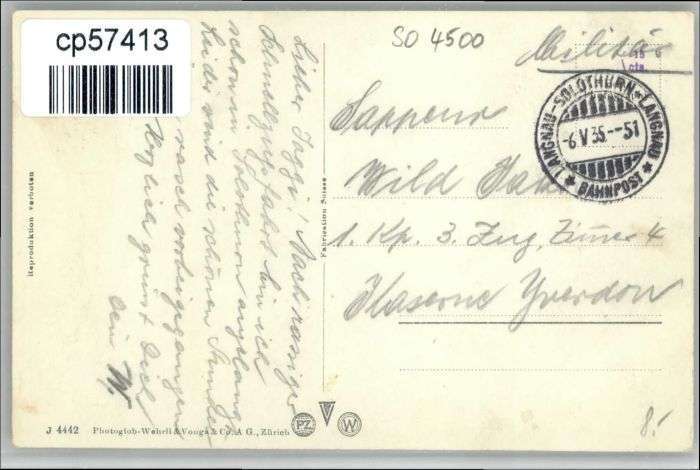 cp57413
SO 4500
Militär
15
cts.
LANGNAU-SOLOTHURN-LANGNAU
-6.V.35.--51
BAHNPOST
Sappeur
Wild
1. Kp. 3. Zug, Zimmer 4
Kaserne Yverdon
Lieber Jaggi! Nach rassiger
Schnellzugsfahrt bin ich
schon in Solothurn angelangt
Leider sind die schönen Stunden
rasch vorbeigegangen
Herzlich grüsst Dich
Dein W.
Reproduktion verboten
Fabrication Suisse
J 4442 Photoglob-Wehrli & Vouga & Co. A G., Zürich
PZ
V
W
8.-